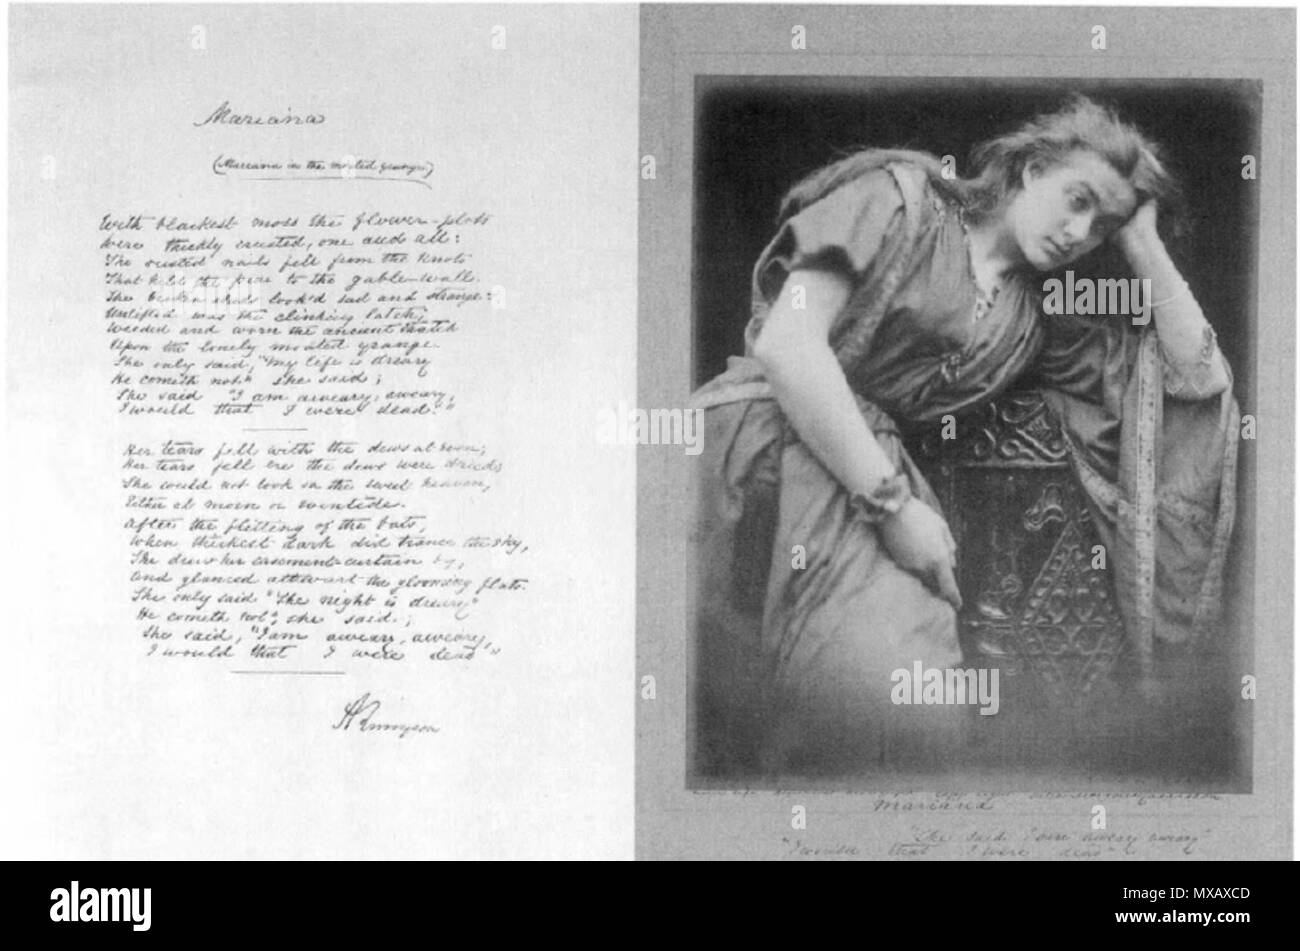 Mariana
(Mariana in the moated grange)
With blackest moss the flower-plots
Were thickly crusted, one and all:
The rusted nails fell from the knots
That held the pear to the gable-wall.
The broken sheds look'd sad and strange:
Unlifted was the clinking latch;
Weeded and worn the ancient thatch
Upon the lonely moated grange.
She only said, "My life is dreary
He cometh not" she said;
She said "I am aweary, aweary,
I would that I were dead."
Her tears fell with the dews at even;
Her tears fell ere the dews were dried;
She could not look on the sweet heaven,
Either at morn or eventide.
After the flitting of the bats,
When thickest dark did trance the sky,
She drew her casement-curtain by,
And glanced athwart the glooming flats.
She only said "The night is dreary"
He cometh not", she said;
She said, "I am aweary, aweary,
I would that I were dead"
A Tennyson
Mariana
"She said I am aweary aweary"
"I would that I were dead"
alamy
alamy
Image ID: MXAXCD
www.alamy.com